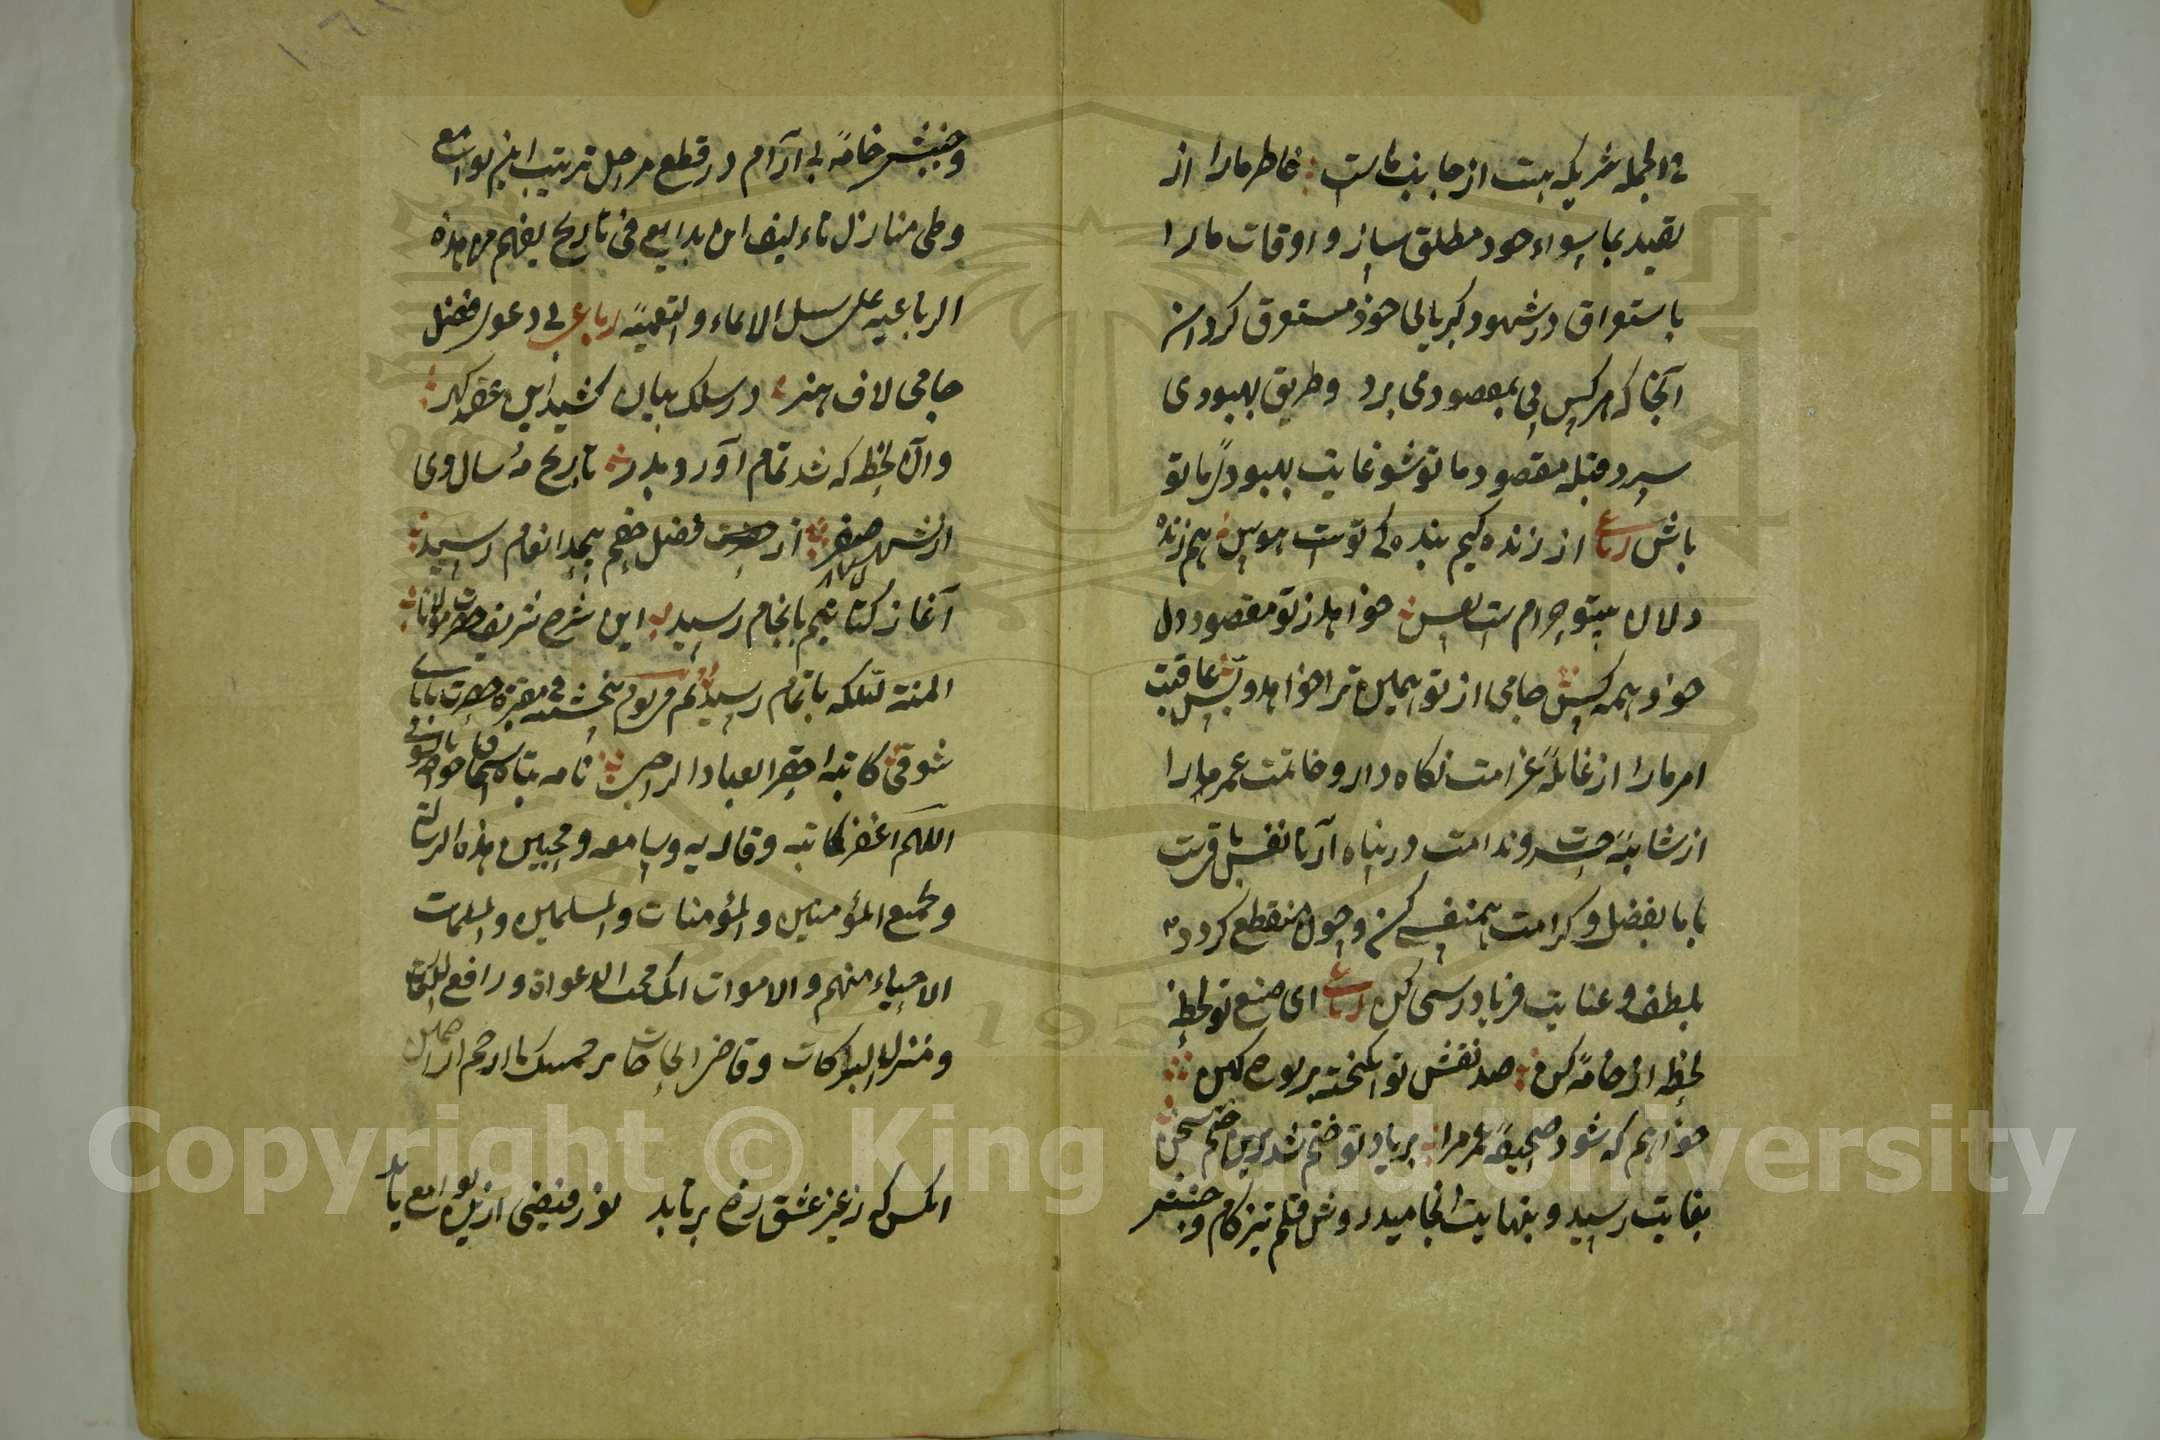 فی الجمله شریکیه هست از جانب ماست خاطر ما را از
تقید بماسواء خود مطلق ساز و اوقات ما را
باستغراق در شهود کبریائی خود مستغرق گردان
آنجا که هر کس پی بمقصود می برد و طریق بهبودی
سپرد قبله مقصود ما تو شو غایت بهبودی ما تو
باش رباعی از زنده کیم بنده کی تست هوس هم زنده
دلان بیتو حرام ست نفس خواهد ز تو مقصود دل
خود همه کس جامی از تو همین ترا خواهد و بس عاقبت
امر ما را از غایله غرامت نگاه دار و خاتمت عمر ما را
از شائبه حسرت و ندامت در پناه آر تا نفس باقیست
با ما بفضل و کرامت همنفسی کن و چون منقطع گردد
بلطف و عنایت فریادرسی کن رباعی ای صنع تو لحظه
لحظه از خامه کن صد نقش نو انگیخته بر لوح کهن
خواهم که شود صحیفه عمر مرا بر یاد تو ختم شد برین ختم سخن
بغایت رسید و بنهایت انجامید روش قلم تیزگام و جنبش
و جنبش خامه بی آرام در قطع مراحل ترتیب این لوامع
و طی منازل تاءلیف این بدایع فی تاریخ یفهم من هذه
الرباعیه علی سبیل الایماء والتعمیه رباعی بی دعوی فضل
جامی لاف هنر در سلک بیان کشید این عقد گهر
وان لحظه که شد تمام آورد بدر تاریخ مه سال وی
از شهر صفر از فضل خضم بیحد انعام رسید
آغاز کتابتیم بانجام رسید این شرح شریف حضرت مولانا
المنة لتلکه باتمام رسید تم فی یوم پنجشنبه فی مقبره حضرت بابای
شوقی کاتبه احقر العباد الراجی نامه تباه
اللهم اغفر لکاتبه و قاریه و سامعه و محبین هذه الرسالة
و لجمیع المؤمنین والمؤمنات والمسلمین والمسلمات
الاحیاء منهم والاموات انک مجیب الدعواة و رافع
و منزل البرکات و قاضی الحاجات برحمتک یا ارحم الراحمین
انکس که ز غیر عشق رخ بر تابد نور فیضی ازین لوامع یابد
Copyright © King Saud University